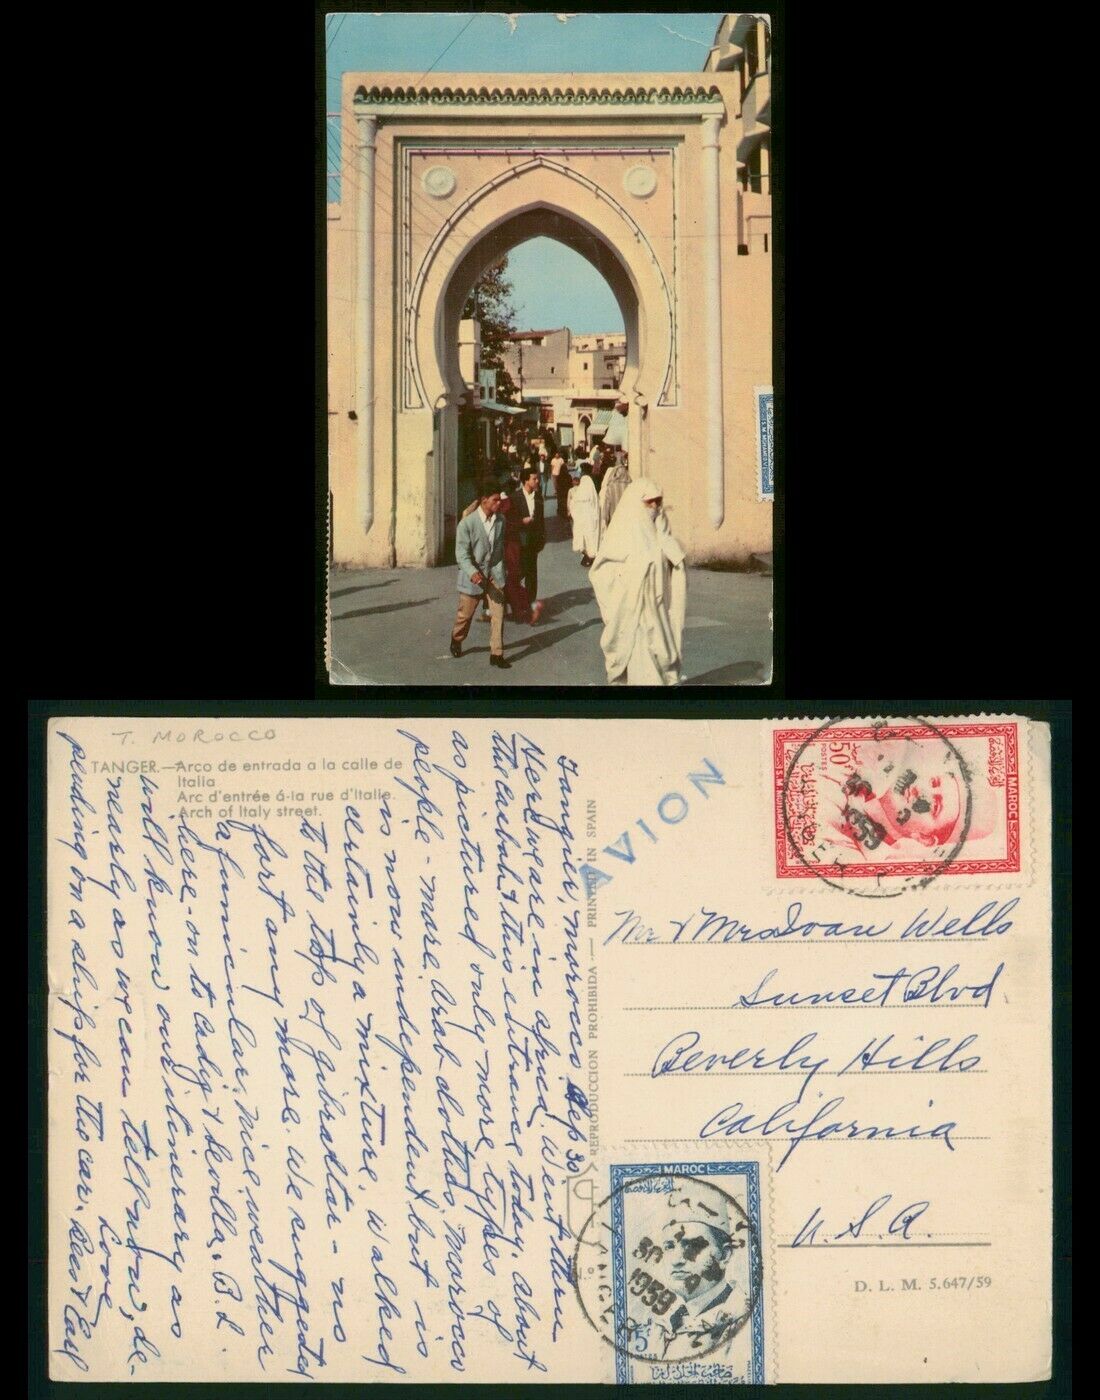 T. MOROCCO
TANGER.—Arco de entrada a la calle de
Italia
Arc d'entrée á-la rue d'Italie.
Arch of Italy street.
Tangier, Morocco Sep 30
Here we are in Africa. Went thru
the casbah & this entrance today. About
as pictured only more types of
people - more Arab clothes, Morocco
is now independent but is
certainly a mixture. Walked
to the top of Gibraltar - no
fort any more. We suggested
a funicular. Nice weather
here - on to Cadiz & Sevilla. B. L.
will know our itinerary as
nearly as we can tell now, de-
pending on a ship for the car.
Love
& Earl
REPRODUCCION PROHIBIDA — PRINTED IN SPAIN
AVION
MAROC
50F
POSTES
1959
Mr & Mrs Ivan Wells
Sunset Blvd
Beverly Hills
California
U.S.A.
MAROC
30
1959
TANGER
15F
D. L. M. 5.647/59